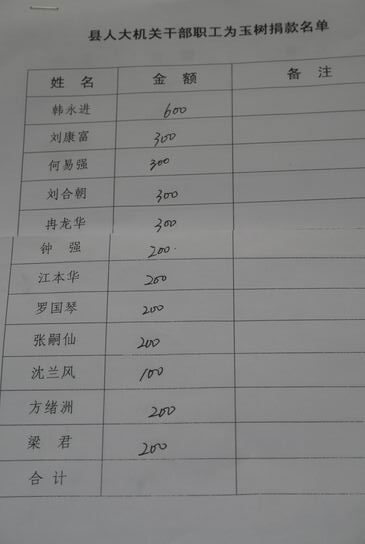 县人大机关干部职工为玉树捐款名单
姓 名 金 额 备 注
韩永进 600
刘康富 300
何易强 300
刘合朝 300
冉龙华 300
钟 强 200
江本华 200
罗国琴 200
张嗣仙 200
沈兰风 100
方绪洲 200
梁 君 200
合 计